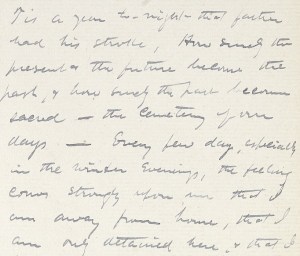 'Tis a year to-night that father
had his stroke, How surely the
present & the future become the
past, & how surely the past becomes
sacred — the Cemetery of our
days — Every few days, especially
in the winter Evenings, the feeling
comes strongly upon me that I
am away from home, that I
am only detained here, & that I